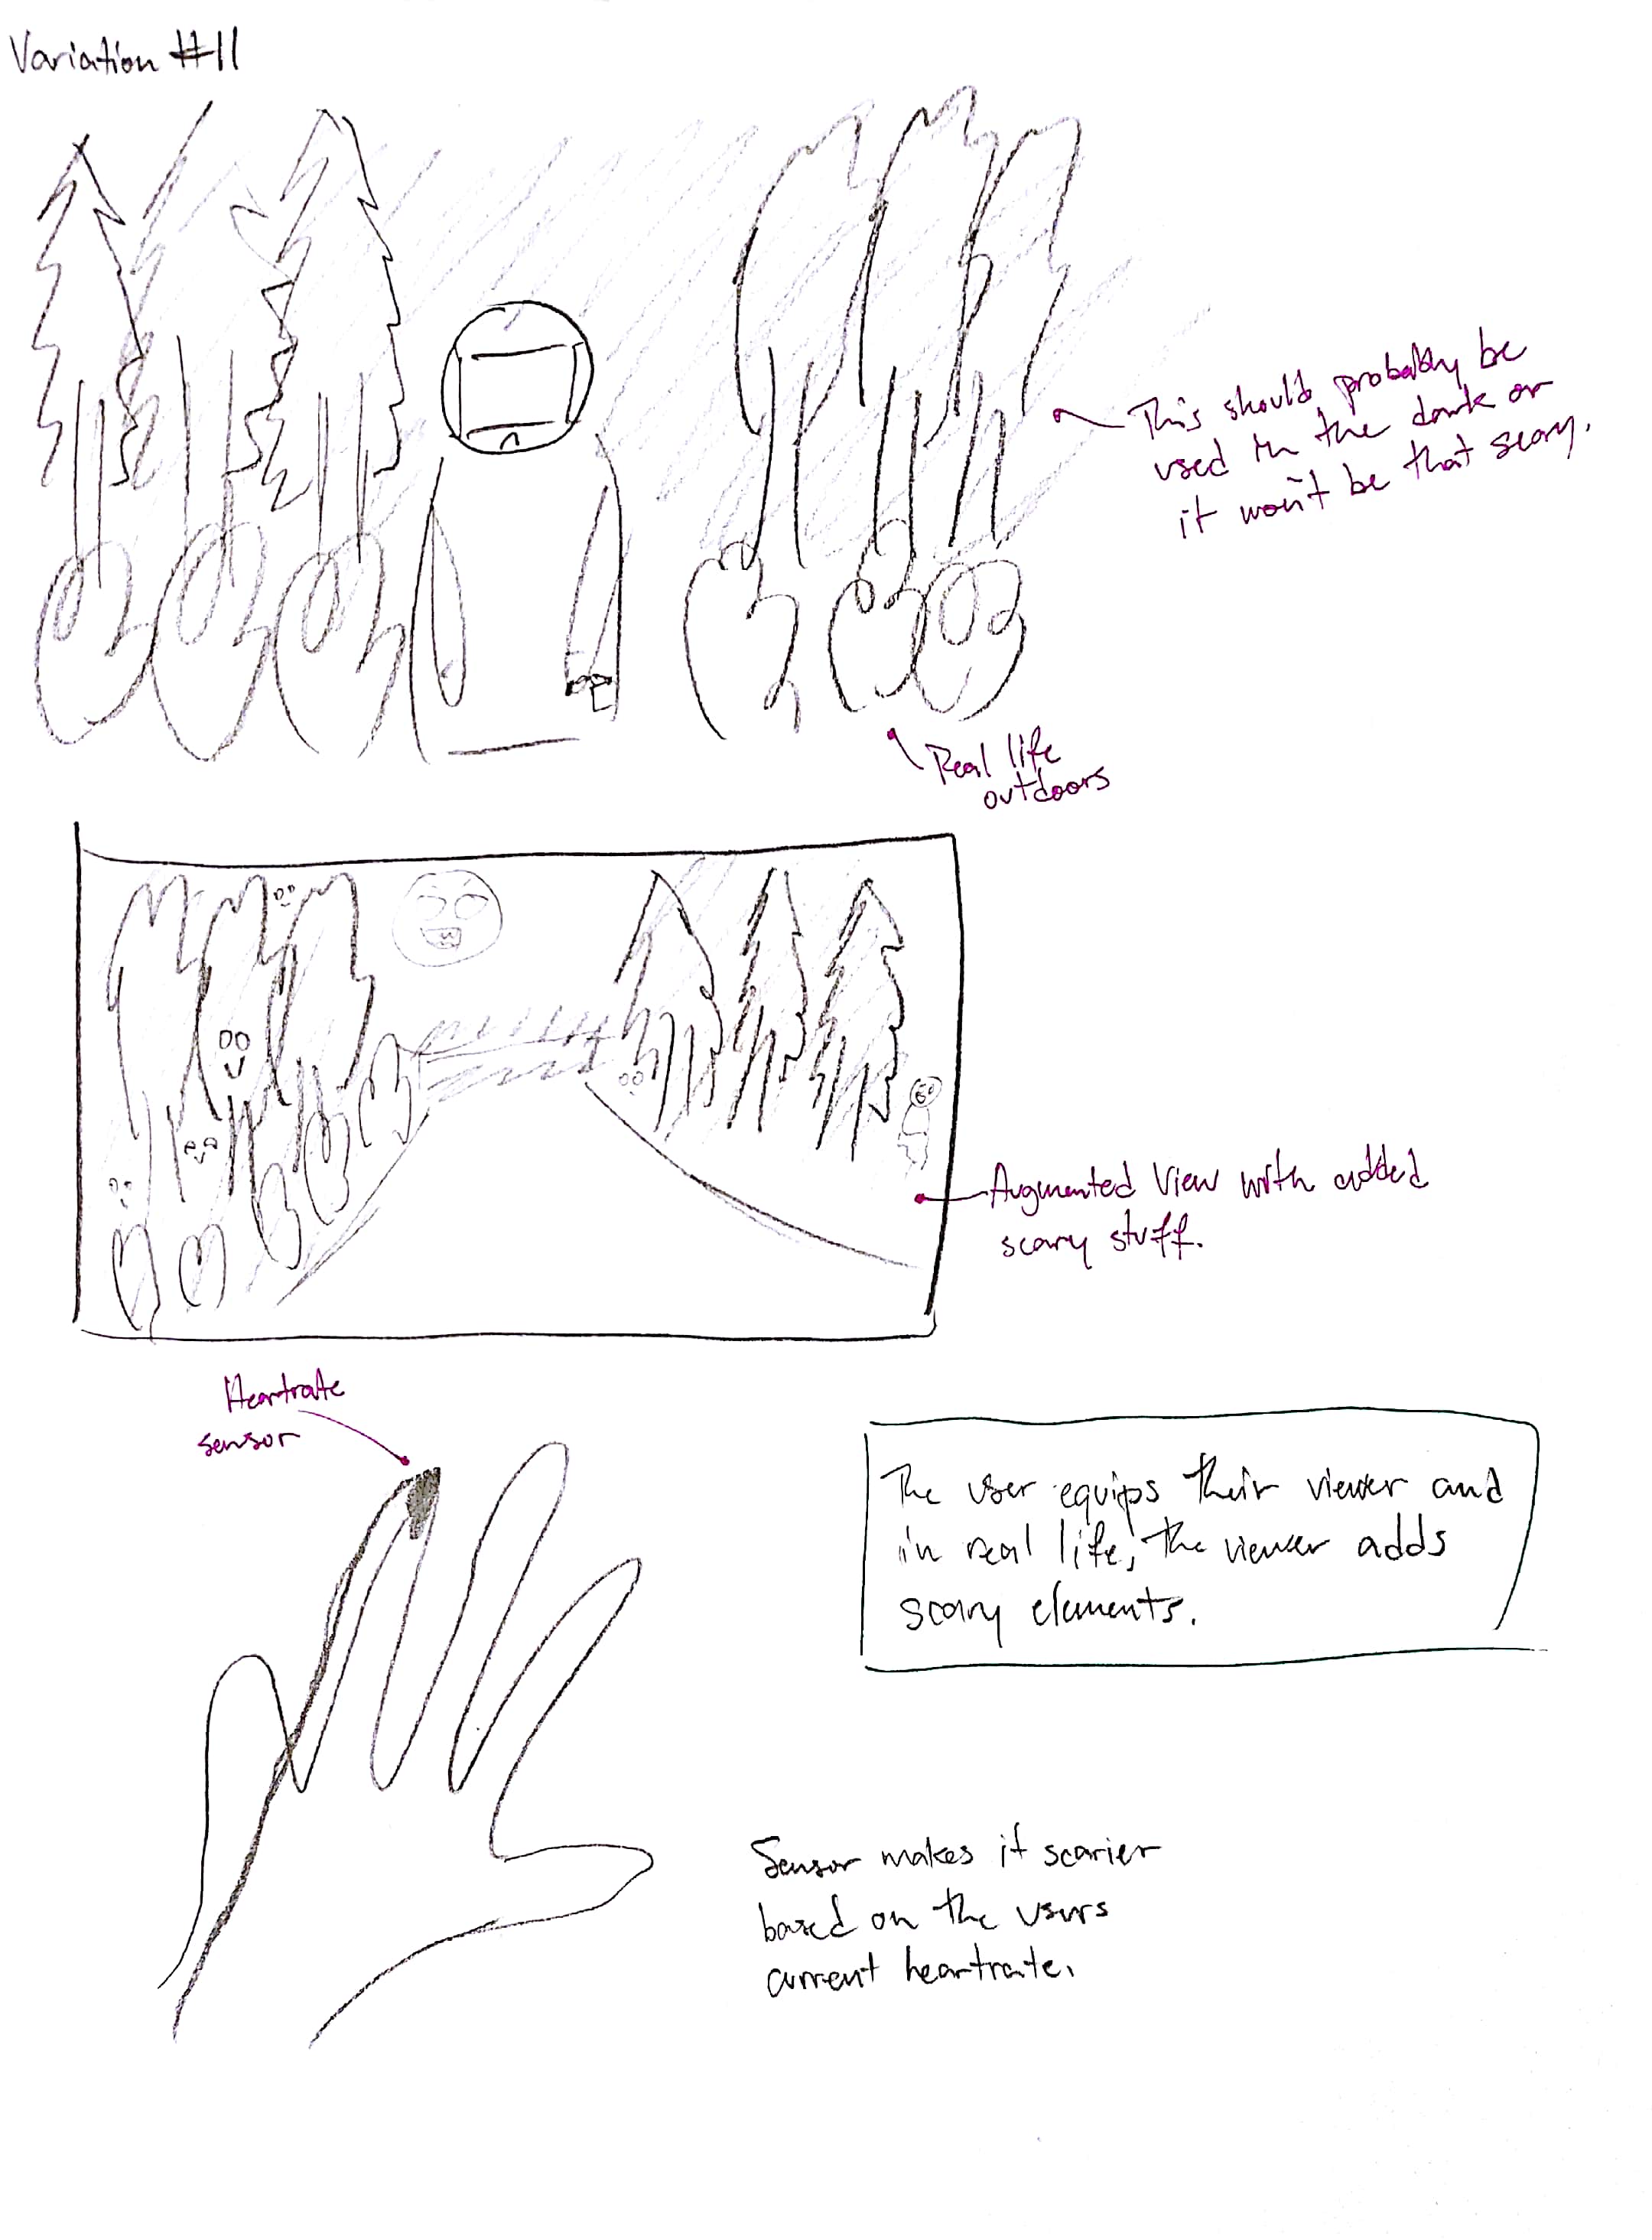 Variation #11
This should probably be
used in the dark or
it won't be that scary.
Real life
outdoors
Augmented View with added
scary stuff.
Heartrate
sensor
The user equips their viewer and
in real life, the viewer adds
scary elements.
Sensor makes it scarier
based on the users
current heartrate.